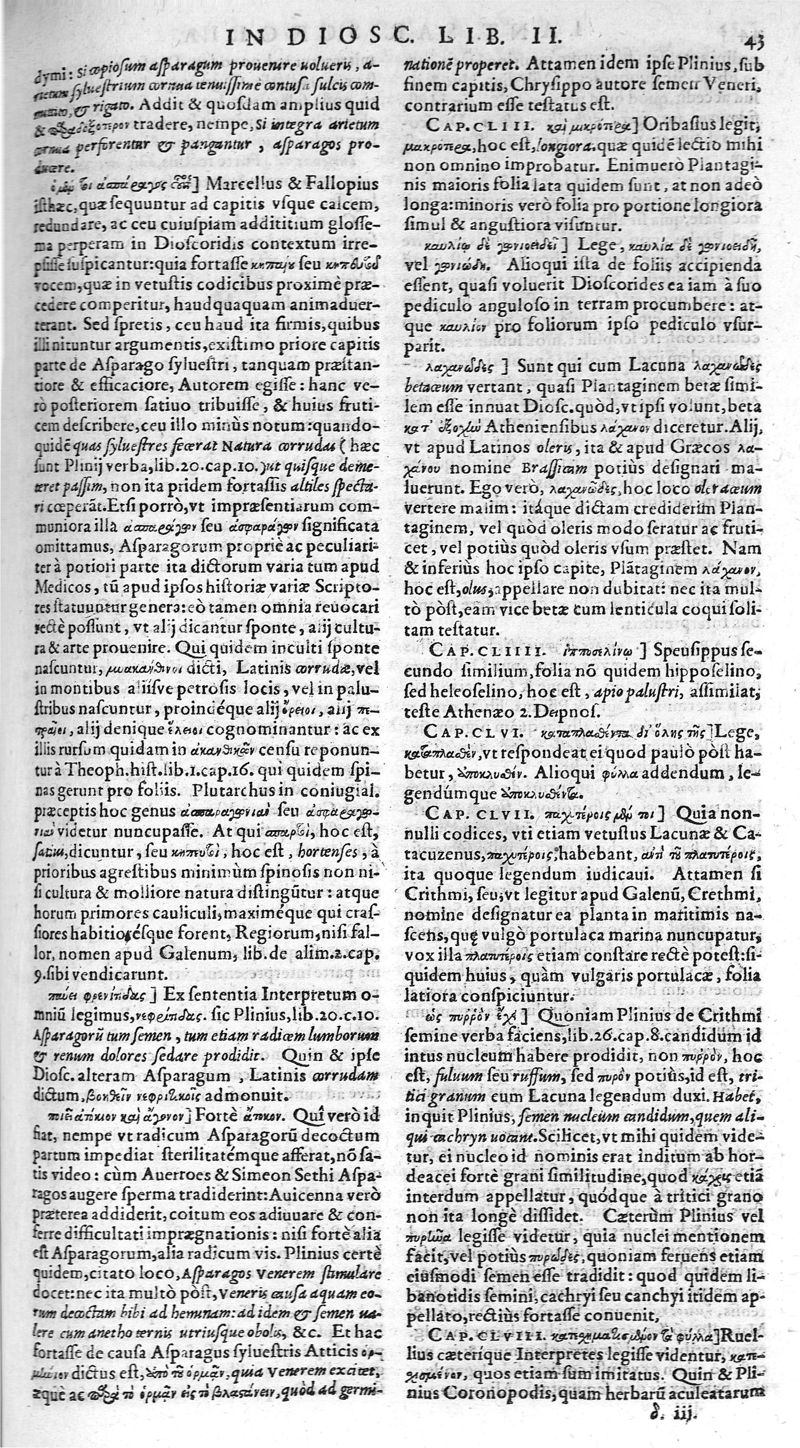 IN DIOSC. LIB. II. 43
dymi: Si copiosum asparagum prouenire uolueris, a-
rietum syluestrium cornua tenuissimè contusa sulcis com-
& rigato. Addit & quosdam amplius quid
& tradere, nempe, Si integra arietum
perforentur & pangantur, asparagos pro-
] Marcellus & Fallopius
isthæc, quæ sequuntur ad capitis vsque calcem,
redundare, ac ceu cuiuspiam addititium glosse-
ma perperam in Dioscoridis contextum irre-
psisse suspicantur: quia fortasse seu
vocem, quæ in vetustis codicibus proximè præ-
cedere comperitur, haudquaquam animaduer-
terant. Sed spretis, ceu haud ita firmis, quibus
illi nituntur argumentis, existimo priore capitis
parte de Asparago syluestri, tanquam præstan-
tiore & efficaciore, Autorem egisse: hanc ve-
rò posteriorem satiuo tribuisse, & huius fruti-
cem describere, ceu illo minùs notum: quando-
quidē quas syluestres fecerat Natura corrudas (hæc
sunt Plinij verba, lib. 20. cap. 10.) ut quisque deme-
teret passim, non ita pridem fortassis altiles specta-
ri cœperāt. Etsi porrò, vt impræsentiarum com-
muniora illa seu ἀσφαράγων significata
omittamus, Asparagorum propriè ac peculiari-
ter à potiori parte ita dictorum varia tum apud
Medicos, tū apud ipsos historiæ variæ Scripto-
res statuuntur genera: eò tamen omnia reuocari
rectè possunt, vt alij dicantur sponte, alij cultu-
ra & arte prouenire. Qui quidem inculti sponte
nascuntur, μυακάνθινοι dicti, Latinis corrudæ, vel
in montibus alijsve petrosis locis, vel in palu-
stribus nascuntur, proindéque alij ὄρειοι, alij πε-
τραῖοι, alij denique ἕλειοι cognominantur: ac ex
illis rursum quidam in ἀκανθικῶν censu reponun-
tur à Theoph. hist. lib. 1. cap. 16. qui quidem spi-
nas gerunt pro foliis. Plutarchus in coniugial.
præceptis hoc genus seu
videtur nuncupasse. At qui σπαρτοὶ, hoc est,
satiui, dicuntur, seu κηπευτοὶ, hoc est, hortenses, à
prioribus agrestibus minimùm spinosis non ni-
si cultura & molliore natura distingūtur: atque
horum primores cauliculi, maximéque qui cras-
siores habitiorésque forent, Regiorum, nisi fal-
lor, nomen apud Galenum, lib. de alim. 2. cap.
9. sibi vendicarunt.
παύει φρενίτιδας] Ex sententia Interpretum o-
mniū legimus, νεφρίτιδας. sic Plinius, lib. 20. c. 10.
Asparagorū tum semen, tum etiam radicem lumborum
& renum dolores sedare prodidit. Quin & ipse
Diosc. alteram Asparagum, Latinis corrudam
dictum, βοηθεῖν νεφριτικοῖς admonuit.
ποιεῖ ἀτόκιον καὶ ἄγονον] Fortè ἄτοκον. Qui verò id
fiat, nempe vt radicum Asparagorū decoctum
partum impediat sterilitatémque afferat, nō sa-
tis video: cùm Auerroes & Simeon Sethi Aspa-
ragos augere sperma tradiderint: Auicenna verò
præterea addiderit, coitum eos adiuuare & con-
ferre difficultati imprægnationis: nisi fortè alia
est Asparagorum, alia radicum vis. Plinius certè
quidem, citato loco, Asparagos Venerem stimulare
docet: nec ita multò pòst, Veneris causa aquam eo-
rum decoctam bibi ad heminam: ad idem & semen ua-
lere cum anetho ternis utriusque obolis, &c. Et hac
fortasse de causa Asparagus syluestris Atticis ὄρ-
μενον dictus est, ὑπὸ τοῦ ὁρμᾶν, quia Venerem excitet,
æquè ac παρὰ τὸ ὁρμᾶν εἰς τὸ βλαστάνειν, quòd ad germi-
nationē properet. Attamen idem ipse Plinius, sub
finem capitis, Chrysippo autore semen Veneri,
contrarium esse testatus est.
CAP. CLIII. καὶ μικρότερα] Oribasius legit,
μακρότερα, hoc est, longiora. quæ quidē lectio mihi
non omnino improbatur. Enimuerò Plantagi-
nis maioris folia lata quidem sunt, at non adeò
longa: minoris verò folia pro portione longiora
simul & angustiora visuntur.
καυλίῳ δὲ γωνιοειδεῖ] Lege, καυλία δὲ γωνιοειδῆ,
vel γωνιώδη. Alioqui ista de foliis accipienda
essent, quasi voluerit Dioscorides ea iam à suo
pediculo anguloso in terram procumbere: at-
que καυλίον pro foliorum ipso pediculo vsur-
parit.
λαχανώδες] Sunt qui cum Lacuna λαχανῶδες
betaceum vertant, quasi Plantaginem betæ simi-
lem esse innuat Diosc. quòd, vt ipsi volunt, beta
κατ' ἐξοχὴν Atheniensibus λάχανον diceretur. Alij,
vt apud Latinos oleris, ita & apud Græcos λα-
χάνου nomine Brassicam potiùs designari ma-
luerunt. Ego verò, λαχανῶδες, hoc loco oleraceum
vertere malim: itáque dictam crediderim Plan-
taginem, vel quòd oleris modo seratur ac fruti-
cet, vel potiùs quòd oleris vsum præstet. Nam
& inferiùs hoc ipso capite, Plātaginem λάχανον,
hoc est, olus, appellare non dubitat: nec ita mul-
tò pòst, eam vice betæ cum lenticula coqui soli-
tam testatur.
CAP. CLIIII. ἱπποσελίνῳ] Speusippus se-
cundo similium, folia nō quidem hipposelino,
sed heleoselino, hoc est, apio palustri, assimilat,
teste Athenæo 2. Deipnos.
CAP. CLVI. καταπλασθέντα δι' ὅλης τῆς] Lege,
καταπλασθέν, vt respondeat ei quod paulò pòst ha-
betur, ὑποκλυσθέν. Alioqui φύλλα addendum, le-
gendúmque ὑποκλυσθέντα.
CAP. CLVII. παχυτέροις μέν τοι] Quia non-
nulli codices, vti etiam vetustus Lacunæ & Ca-
tacuzenus, παχυτέροις, habebant, ἀντὶ τοῦ πλατυτέροις,
ita quoque legendum iudicaui. Attamen si
Crithmi, seu, vt legitur apud Galenū, Crethmi,
nomine designatur ea planta in maritimis na-
scens, quę vulgò portulaca marina nuncupatur,
vox illa πλατυτέροις etiam constare rectè potest: si-
quidem huius, quàm vulgaris portulacæ, folia
latiora conspiciuntur.
ὡς πυρρὸν ἔχῃ] Quoniam Plinius de Crithmi
semine verba faciens, lib. 26. cap. 8. candidum id
intus nucleum habere prodidit, non πυρρὸν, hoc
est, fuluum seu ruffum, sed πυρὸν potiùs, id est, tri-
tici granum cum Lacuna legendum duxi. Habet,
inquit Plinius, semen nucleum candidum, quem ali-
qui cachryn uocant. Scilicet, vt mihi quidem vide-
tur, ei nucleo id nominis erat inditum ab hor-
deacei fortè grani similitudine, quod κάχρυς etiā
interdum appellatur, quódque à tritici grano
non ita longè dissidet. Cæterùm Plinius vel
πυρῆνα legisse videtur, quia nuclei mentionem
facit, vel potiùs πυρῶδες, quoniam feruens etiam
eiusmodi semen esse tradidit: quod quidem li-
banotidis semini, cachryi seu canchyi itidem ap-
pellato, rectiùs fortasse conuenit.
CAP. CLVIII. τὰ φύλλα] Ruel-
lius cæteríque Interpretes legisse videntur,
quos etiam sum imitatus. Quin & Pli-
nius Coronopodis, quam herbarū aculeatarum
d. iij.